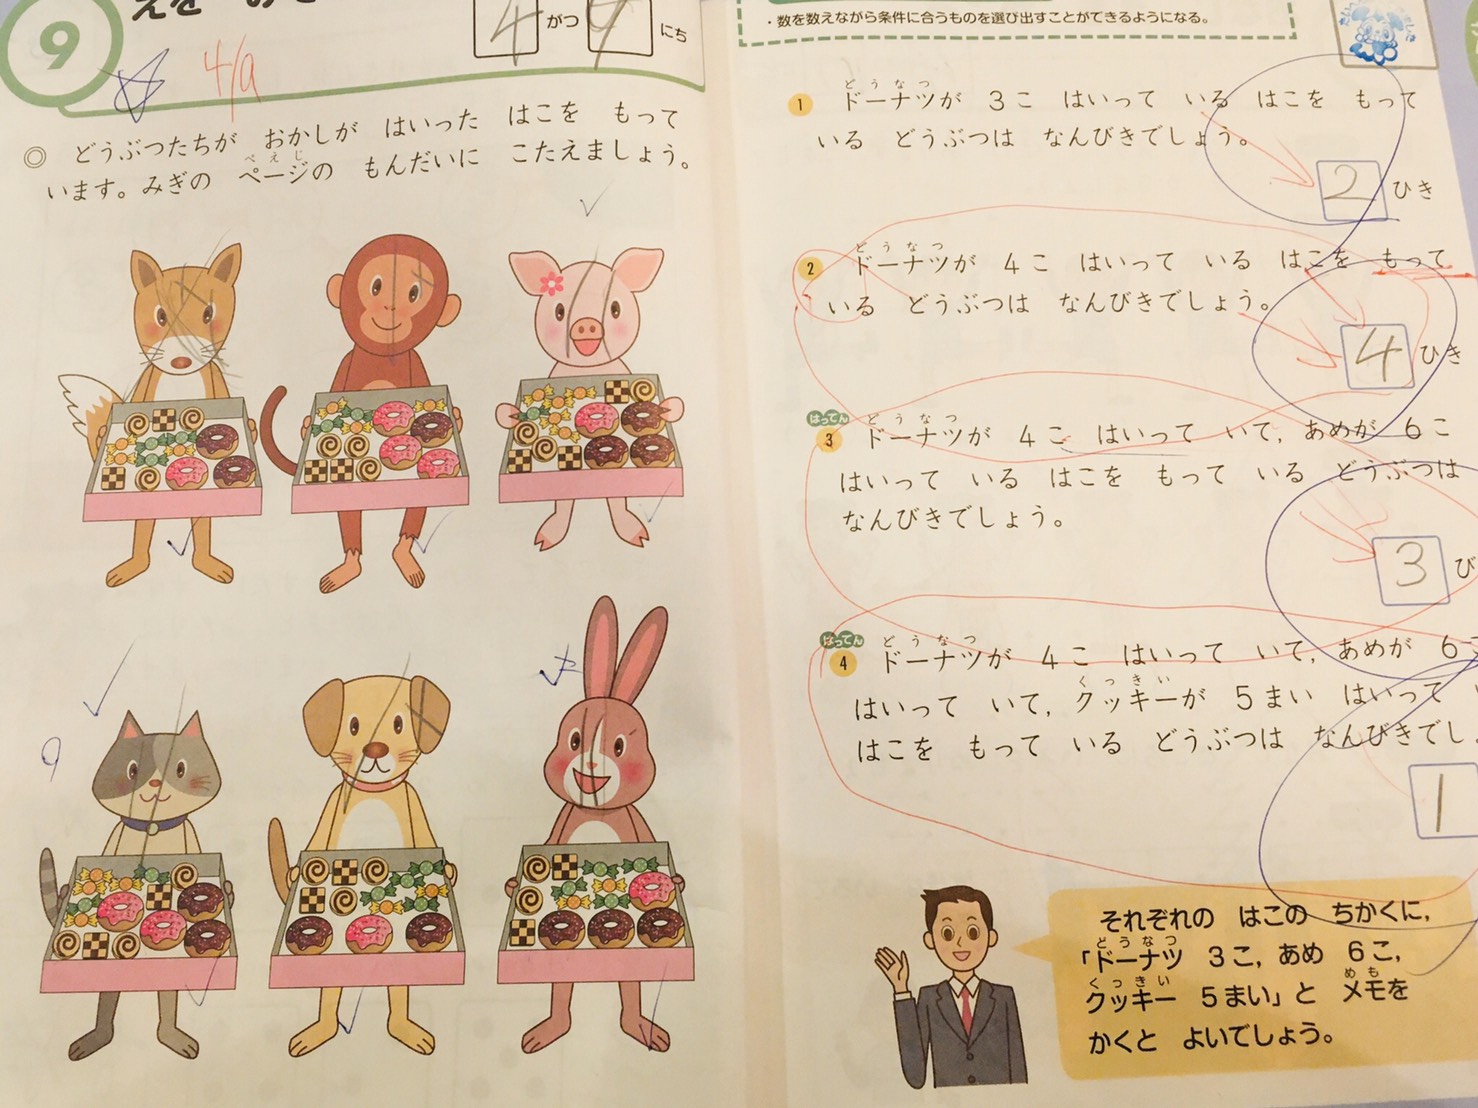 9
4 がつ 9 にち
4/9
◎ どうぶつたちが おかしが はいった はこを もって
います。みぎの ページの もんだいに こたえましょう。
ぺえじ
・数を数えながら条件に合うものを選び出すことができるようになる。
どうなつ
1 ドーナツが 3こ はいって いる はこを もって
いる どうぶつは なんびきでしょう。
2 ひき
どうなつ
2 ドーナツが 4こ はいって いる はこを もって
いる どうぶつは なんびきでしょう。
4 ひき
はってん どうなつ
3 ドーナツが 4こ はいって いて, あめが 6こ
はいって いる はこを もって いる どうぶつは
なんびきでしょう。
3 び
はってん どうなつ
4 ドーナツが 4こ はいって いて, あめが 6こ
くっきい
はいって いて, クッキーが 5まい はいって
はこを もって いる どうぶつは なんびきでし
1
それぞれの はこの ちかくに,
どうなつ
「ドーナツ 3こ, あめ 6こ,
くっきい めも
クッキー 5まい」と メモを
かくと よいでしょう。